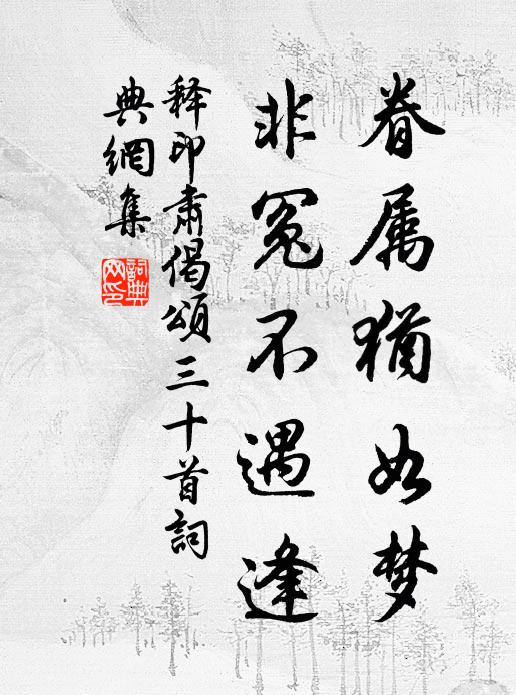 眷属犹如梦
非冤不遇逢
释印肃偈颂三十首詞
典網集
詞典网印